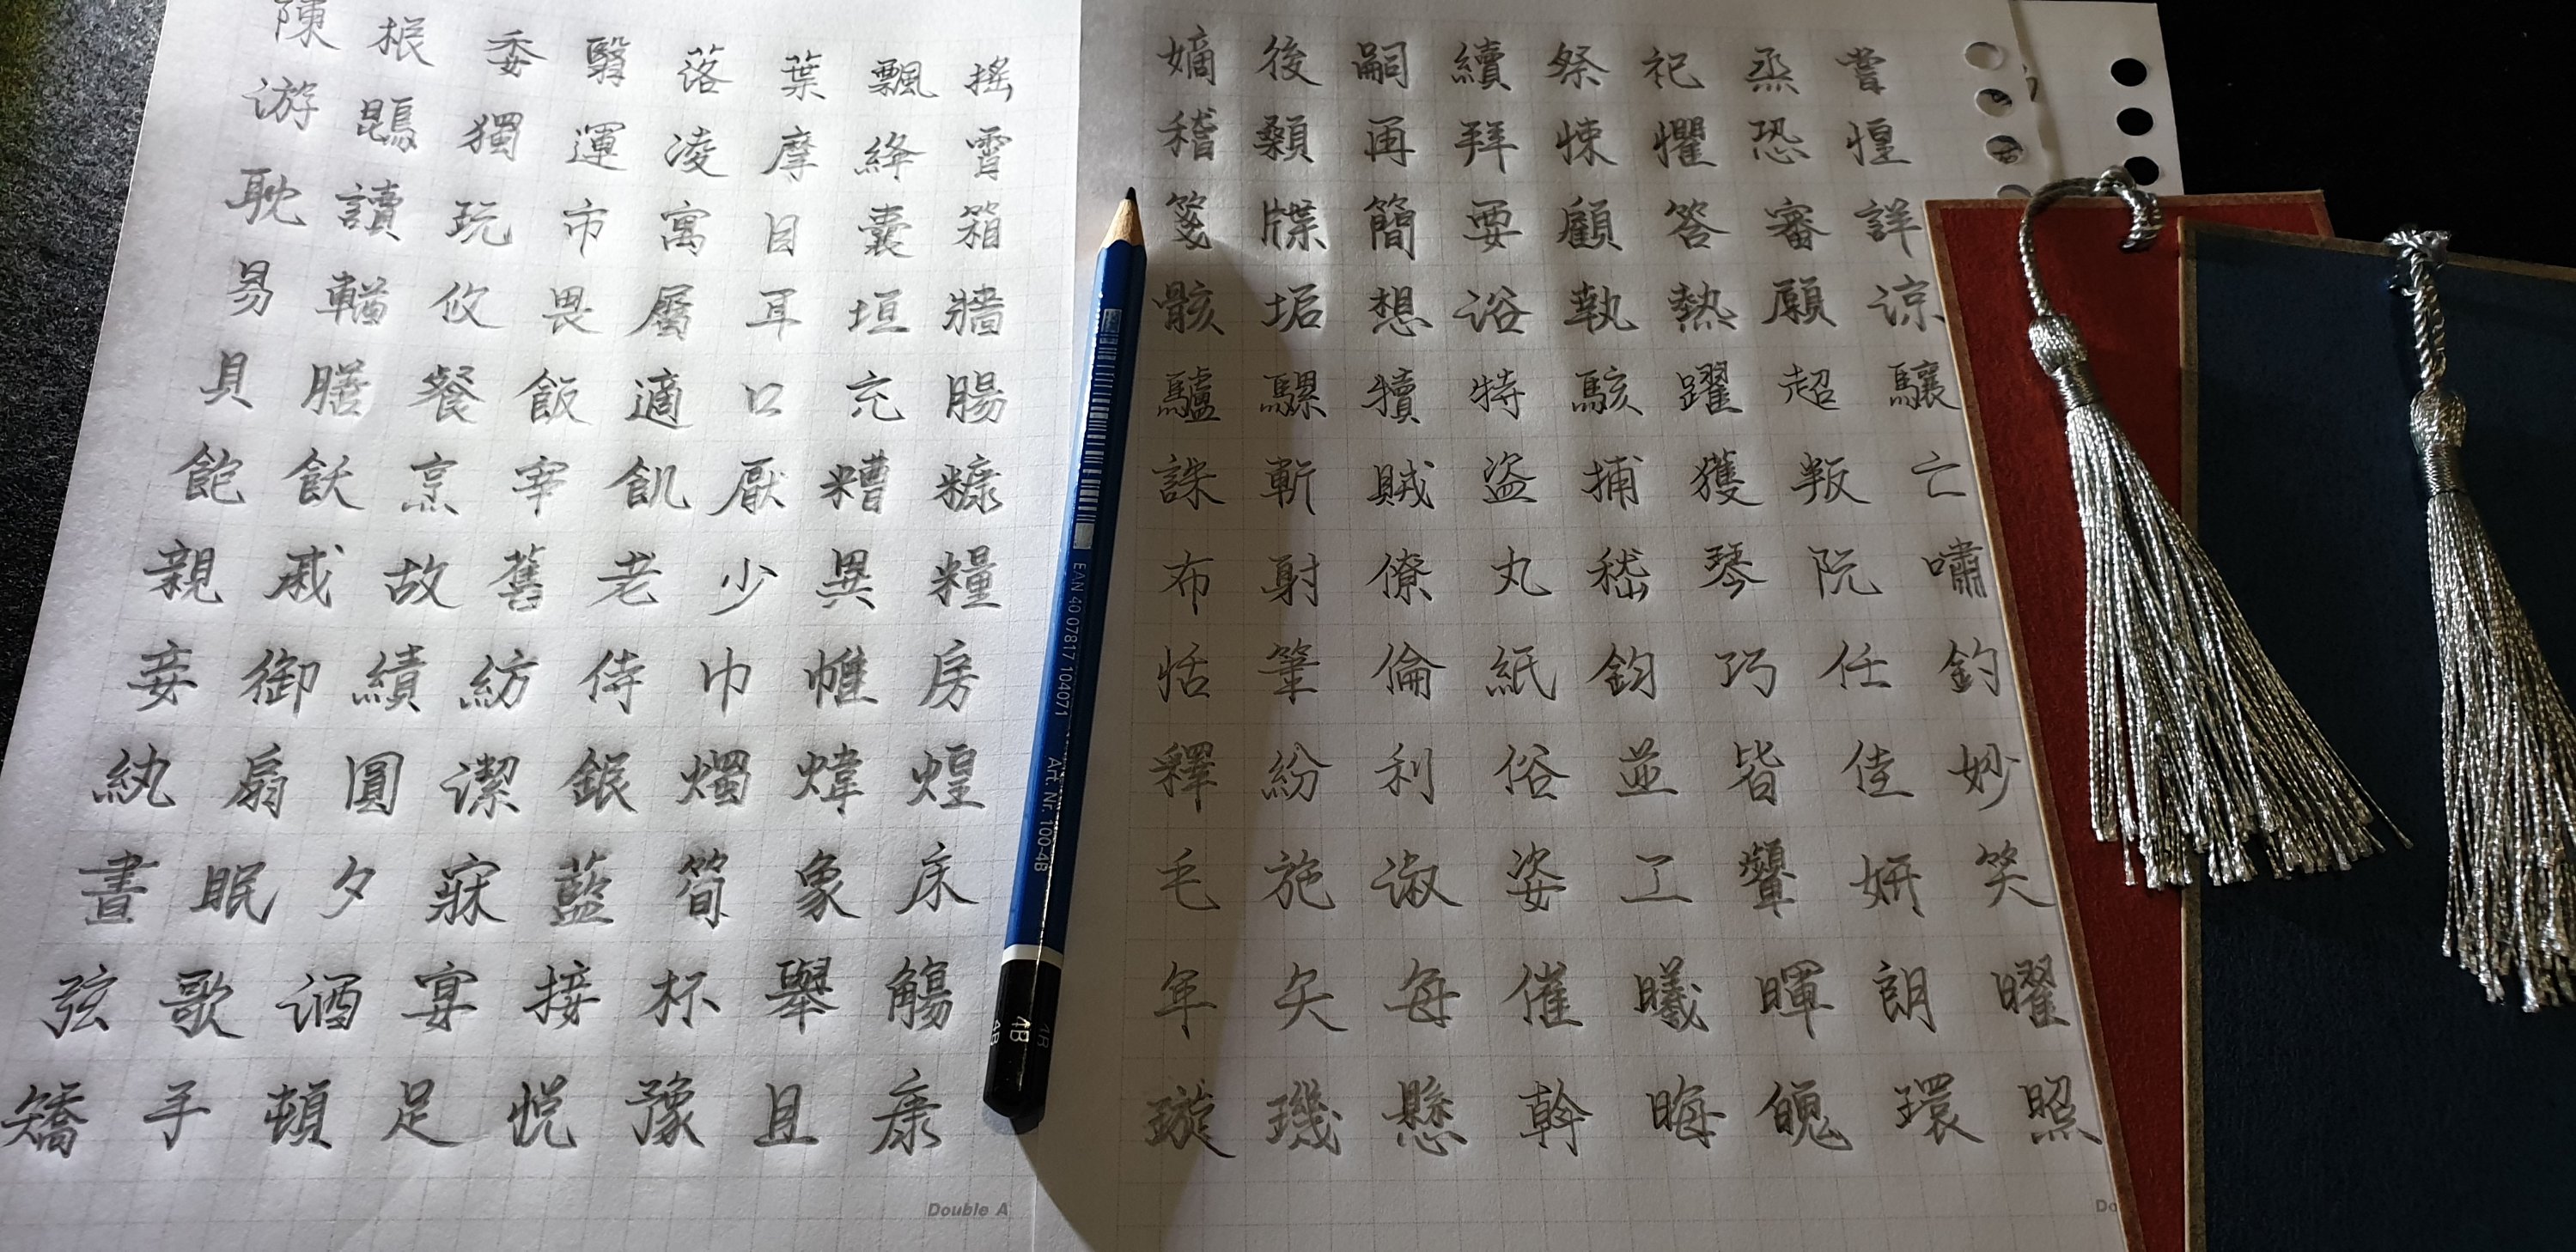 陳根委翳落葉飄搖
游鵾獨運凌摩絳霄
耽讀玩市寓目囊箱
易輶攸畏屬耳垣牆
具膳餐飯適口充腸
飽飫烹宰飢厭糟糠
親戚故舊老少異糧
妾御績紡侍巾帷房
紈扇圓潔銀燭煒煌
晝眠夕寐藍筍象床
弦歌酒宴接杯舉觴
矯手頓足悅豫且康
Double A
嫡後嗣續祭祀烝嘗
稽顙再拜悚懼恐惶
箋牒簡要顧答審詳
骸垢想浴執熱願涼
驢騾犢特駭躍超驤
誅斬賊盜捕獲叛亡
布射僚丸嵇琴阮嘯
恬筆倫紙鈞巧任釣
釋紛利俗並皆佳妙
毛施淑姿工顰妍笑
年矢每催曦暉朗曜
璇璣懸斡晦魄環照
Do
EAN 40 07817 104071 Art. Nr. 100-4B
4B 4B 4B